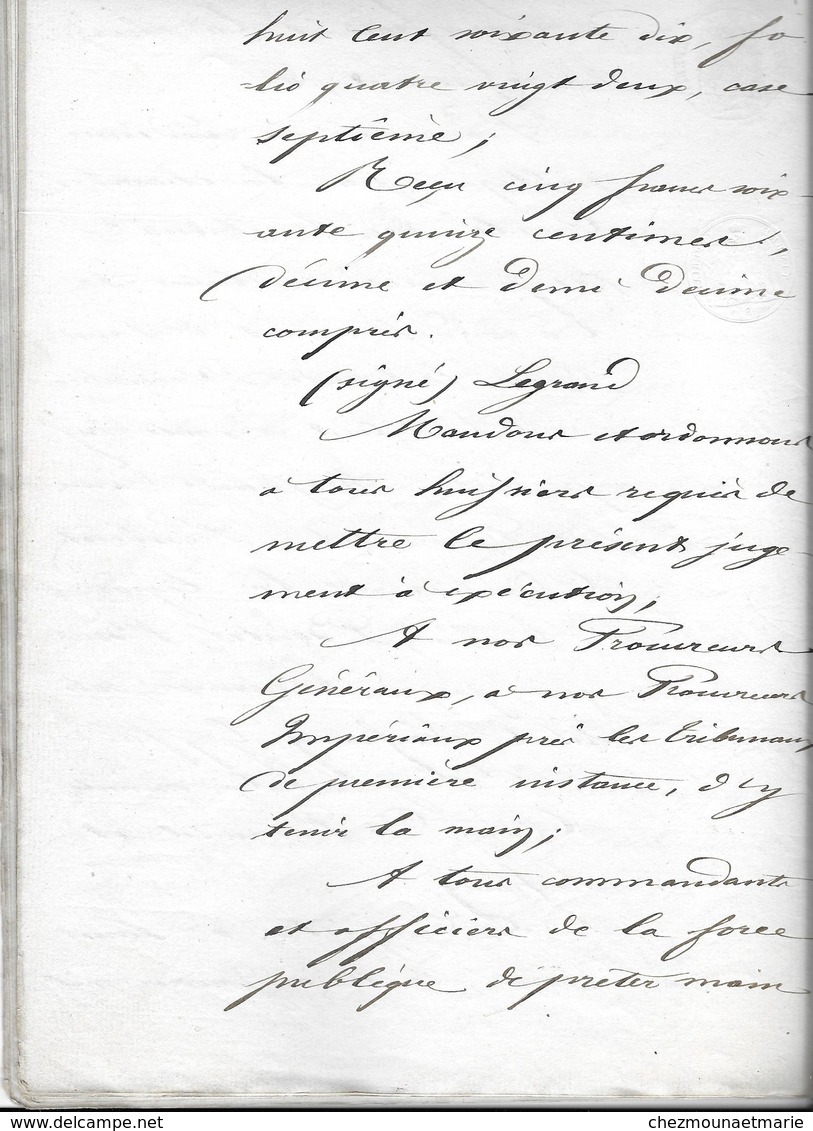 huit cent soixante dix, fo-
-lio quatre vingt deux, case
septième;
Reçu cinq francs soix-
ante quinze centimes,
décime et demi décime
compris.
(signé) Legrand
Mandons et ordonnons
à tous huissiers requis de
mettre le présent juge-
ment à exécution;
A nos Procureurs
Généraux, à nos Procureurs
Impériaux près les tribunaux
de première instance, d'y
tenir la main;
A tous commandants
et officiers de la force
publique de prêter main
chezmounaetmarie